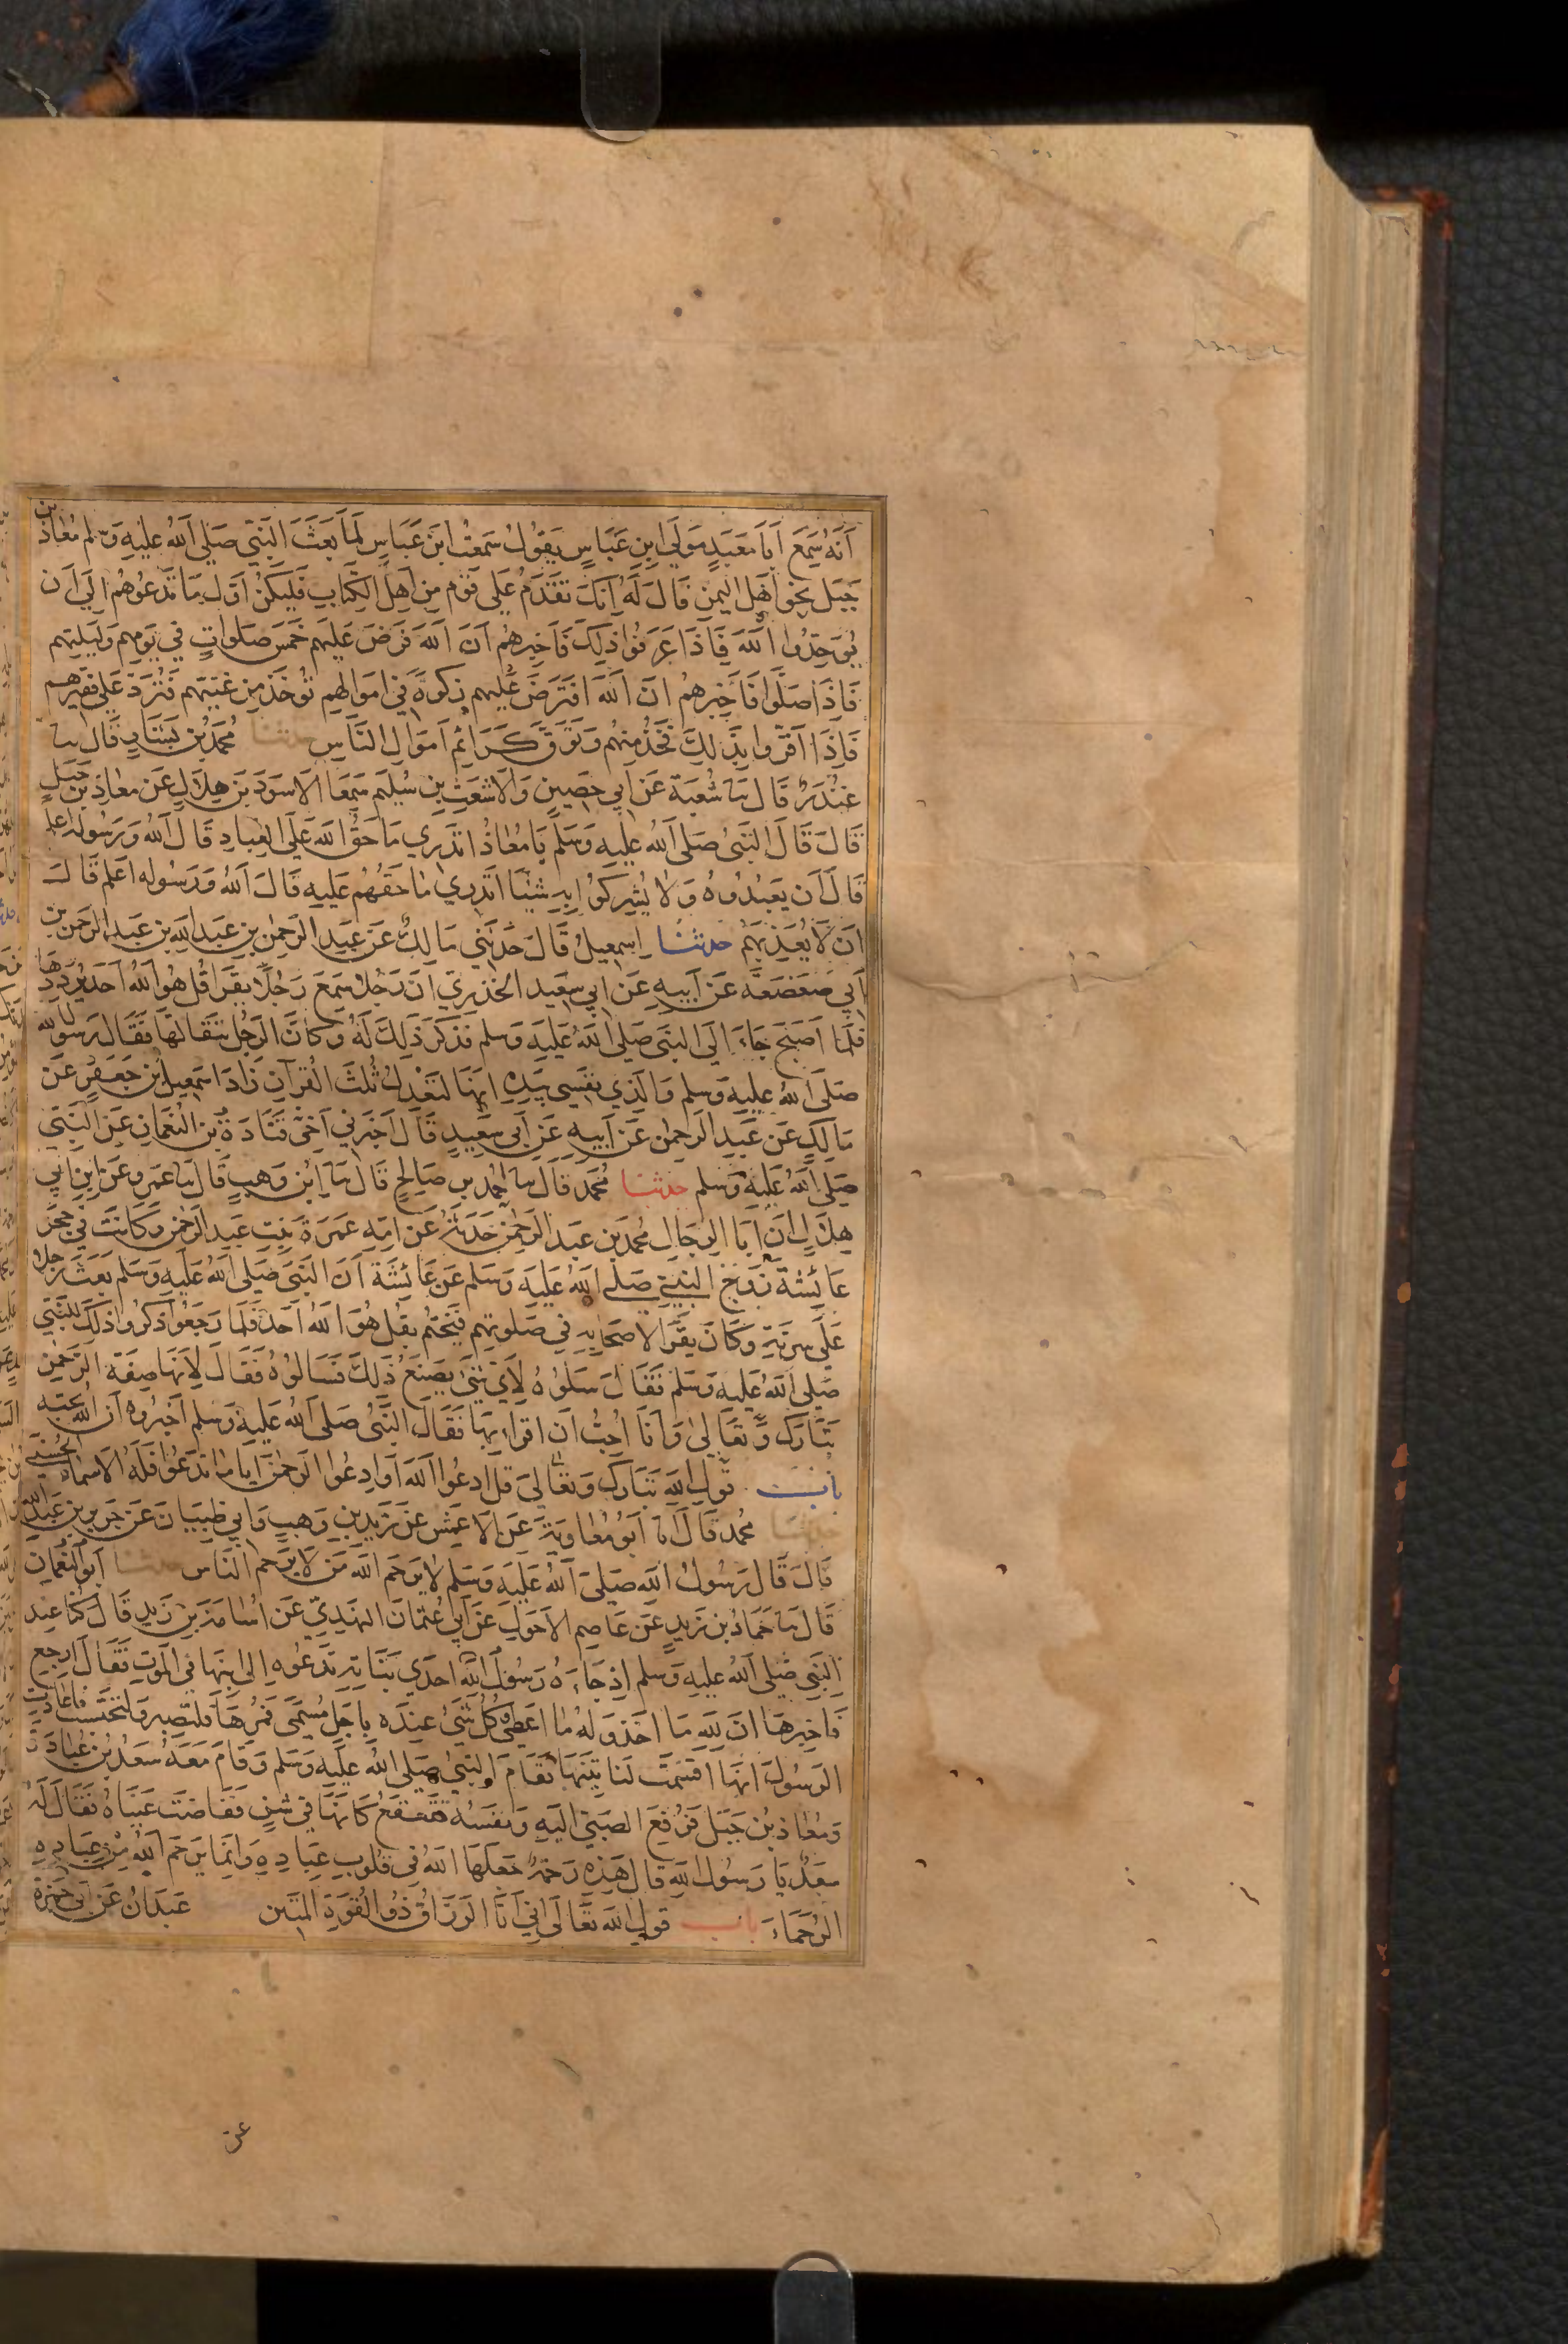 أنه سمع أبا معبد مولى ابن عباس يقول سمعت ابن عباس لما بعث النبي صلى الله عليه وسلم معاذ بن
جبل نحو أهل اليمن قال له إنك تقدم على قوم من أهل الكتاب فليكن أول ما تدعوهم إلى أن
يوحدوا الله فإذا عرفوا ذلك فأخبرهم أن الله فرض عليهم خمس صلوات في يومهم وليلتهم
فإذا صلوا فأخبرهم أن الله افترض عليهم زكوة في أموالهم تؤخذ من غنيهم فترد على فقيرهم
فإذا أقروا بذلك فخذ منهم وتوق كرائم أموال الناس حدثنا محمد بن بشار قال ثنا
غندر قال ثنا شعبة عن أبي حصين والأشعث بن سليم سمعا الأسود بن هلال عن معاذ بن جبل
قال قال النبي صلى الله عليه وسلم يا معاذ أتدري ما حق الله على العباد قال الله ورسوله أعلم
قال أن يعبدوه ولا يشركوا به شيئا أتدري ما حقهم عليه قال الله ورسوله أعلم قال
أن لا يعذبهم حدثنا إسمعيل قال حدثني مالك عن عبد الرحمن بن عبد الله بن عبد الرحمن بن
أبي صعصعة عن أبيه عن أبي سعيد الخدري أن رجلا سمع رجلا يقرأ قل هو الله أحد يرددها
فلما أصبح جاء إلى النبي صلى الله عليه وسلم فذكر ذلك له وكان الرجل يتقالها فقال رسول الله
صلى الله عليه وسلم والذي نفسي بيده إنها لتعدل ثلث القرآن زاد إسمعيل بن جعفر عن
مالك عن عبد الرحمن عن أبيه عن أبي سعيد قال أخبرني أخي قتادة بن النعمان عن النبي
صلى الله عليه وسلم حدثنا محمد قال ثنا أحمد بن صالح قال ثنا ابن وهب قال ثنا عمرو عن ابن أبي
هلال أن أبا الرجال محمد بن عبد الرحمن حدثه عن أمه عمرة بنت عبد الرحمن وكانت في حجر
عائشة زوج النبي صلى الله عليه وسلم عن عائشة أن النبي صلى الله عليه وسلم بعث رجلا
على سرية وكان يقرأ لأصحابه في صلوتهم فيختم بقل هو الله أحد فلما رجعوا ذكروا ذلك للنبي
صلى الله عليه وسلم فقال سلوه لأي شيء يصنع ذلك فسألوه فقال لأنها صفة الرحمن
تبارك وتعالى وأنا أحب أن أقرأ بها فقال النبي صلى الله عليه وسلم أخبروه أن الله يحبه
باب قول الله تبارك وتعالى قل ادعوا الله أو ادعوا الرحمن أيا ما تدعوا فله الأسماء الحسنى
حدثنا محمد قال انا أبو معاوية عن الأعمش عن زيد بن وهب وأبي ظبيان عن جرير بن عبد الله
قال قال رسول الله صلى الله عليه وسلم لا يرحم الله من لا يرحم الناس حدثنا أبو النعمان
قال ثنا حماد بن زيد عن عاصم الأحول عن أبي عثمان النهدي عن أسامة بن زيد قال كنا عند
النبي صلى الله عليه وسلم إذ جاءه رسول الله إحدى بناته تدعوه إلى ابنها في الموت فقال ارجع
فأخبرها أن لله ما أخذ وله ما أعطى وكل شيء عنده بأجل مسمى فمرها فلتصبر ولتحتسب فأعادت
الرسول أنها أقسمت لتأتينها فقام النبي صلى الله عليه وسلم وقام معه سعد بن عبادة
ومعاذ بن جبل فرفع الصبي إليه ونفسه تقعقع كأنها في شن ففاضت عيناه فقال له
سعد يا رسول الله قال هذه رحمة جعلها الله في قلوب عباده وإنما يرحم الله من عباده
الرحماء باب قول الله تعالى إني أنا الرزاق ذو القوة المتين عبدان عن أبي حمزة
عن